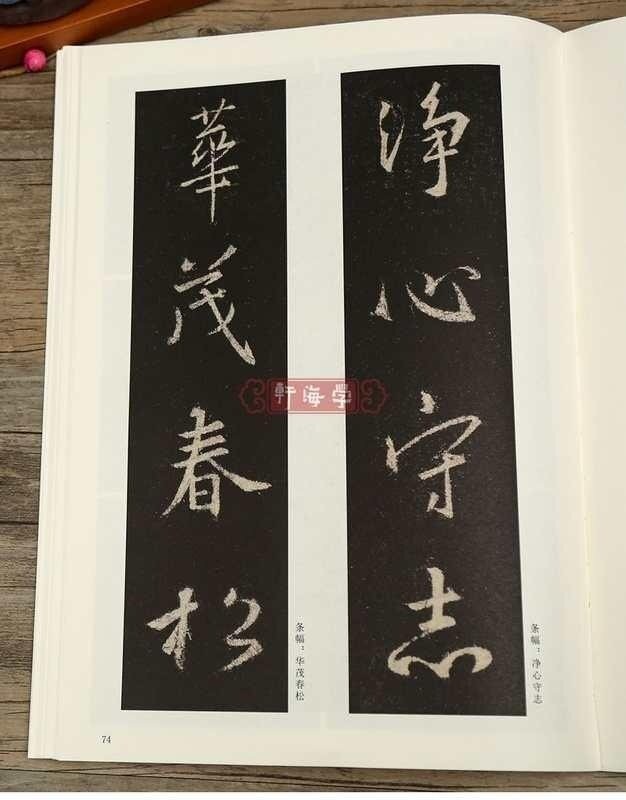 淨心守志
条幅：净心守志
華茂春松
条幅：华茂春松
軒海学
74